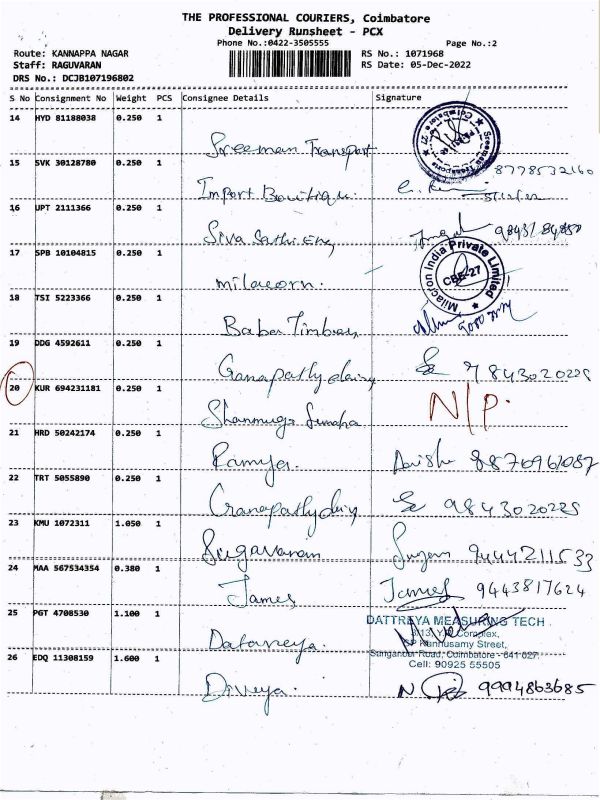 THE PROFESSIONAL COURIERS, Coimbatore
Delivery Runsheet - PCX
Phone No.:0422-3505555 Page No.:2
Route: KANNAPPA NAGAR RS No.: 1071968
Staff: RAGUVARAN RS Date: 05-Dec-2022
DRS No.: DCJB107196802
S No Consignment No Weight PCS Consignee Details Signature
14 HYD 81188038 0.250 1 Sreeman Transport
15 SVK 30128780 0.250 1 Import Boutique. 8778532160
16 UPT 2111366 0.250 1 Siva Sathi Eng
17 SPB 10104815 0.250 1 milacorn. Milacron India Private Limited CBE-27
18 TSI 5223366 0.250 1 Baba Timber
19 DDG 4592611 0.250 1 Ganapathy dairy 9843020225
20 KUR 694231181 0.250 1 Shanmuga N/P.
21 HRD 50242174 0.250 1 Ramya. 8870961087
22 TRT 5055890 0.250 1 Ganapathy dairy 9843020225
23 KMU 1072311 1.050 1 Sugavanam 9444211533
24 MAA 567534354 0.380 1 James James 9443817624
25 PGT 4708530 1.100 1 Datareya.
DATTREYA MEASURING TECH
Complex,
Kannusamy Street,
Sanganoor Road, Coimbatore - 641 027.
Cell: 90925 55505
26 EDQ 11308159 1.600 1 Divya. 9994863685